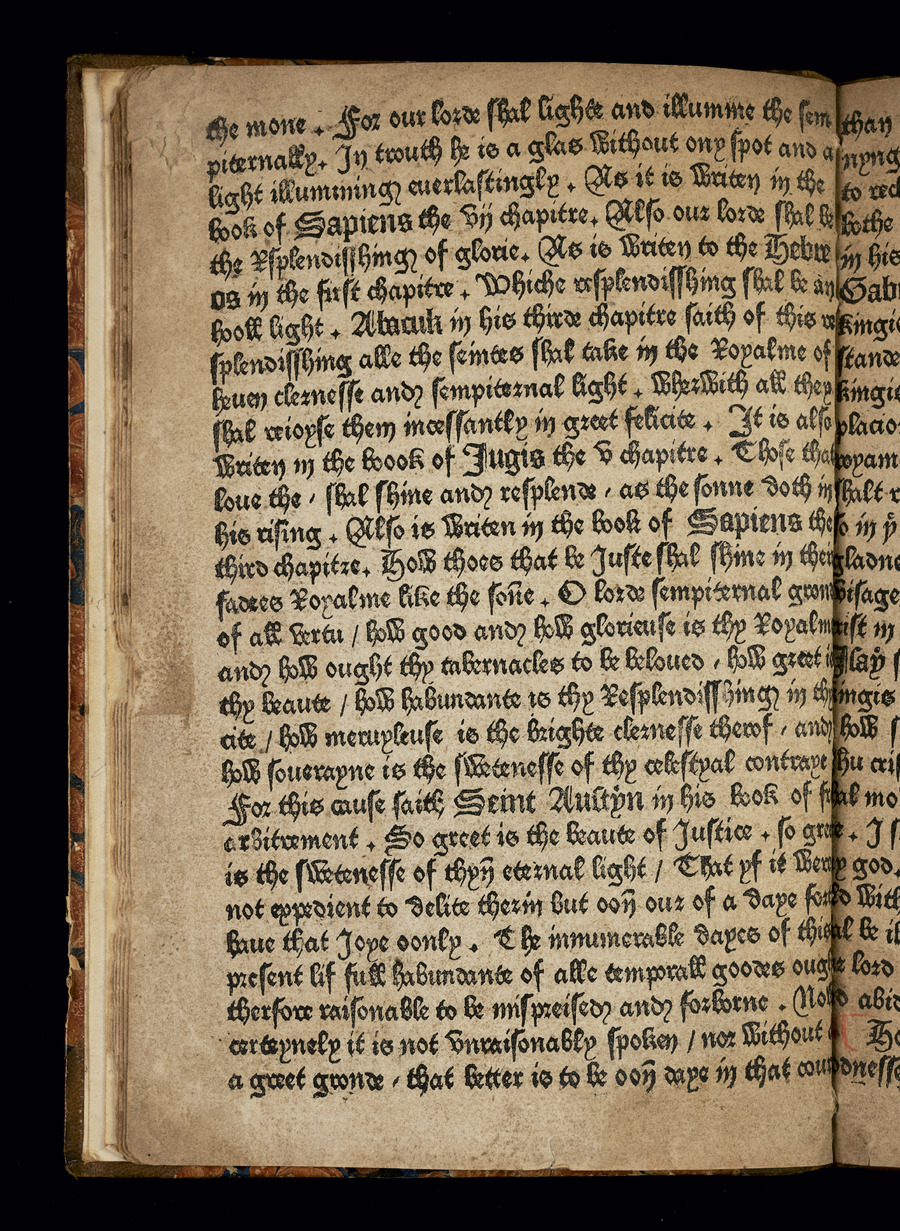 the mone . For our lorde shal lighte and illumine the sem
piternally. In trouth he is a glas without ony spot and a
light illumining euerlastingly . As it is writen in the
book of Sapiens the vij chapitre. Also our lorde shal be
the Resplendisshing of glorie. As is writen to the Hebre
os in the first chapitre . Whiche resplendisshing shal be an
hooll light . Abacuk in his thirde chapitre saith of this re
splendisshing alle the seintes shal take in the Royalme of
heuen clernesse and sempiternal light . wherwith all they
shal reioyse them incessantly in greet felicite . It is also
writen in the boook of Jugis the v chapitre . Those that
loue the / shal shine and resplende / as the sonne doth in
his rising . Also is writen in the book of Sapiens the
third chapitre. How thoes that be Juste shal shine in ther
fadres Royalme like the soñe . O lorde sempiternal
of all vertu / how good and how glorieuse is thy Royalm
and how ought thy tabernacles to be beloued / how greet is
thy beaute / how habundante is thy Resplendisshing in thi
cite / how meruyleuse is the brighte clernesse therof / and
how souerayne is the swetenesse of thy celestyal contraye
For this cause saith Seint Austyn in his book of
arbitrement . So greet is the beaute of Justice . so gree
is the swetenesse of thyn̄ eternal light / That yf it were
not expedient to delite therin but oon̄ our of a daye for
haue that Joye oonly . The innumerable dayes of this
present lif full habundante of alle temporall goodes ough
therfore raisonable to be mispreised and forborne .
certeynely it is not vnraisonably spoken / nor without
a greet gronde / that better is to be oon̄ daye in that cour
than
nyng
to red
bothe
in his
Gab
kingi
stande
kingi
placio
royam
shalt r
so in ẏ
gladne
visage
rist in
Isaÿ s
ingis
how s
hu cris
al mo
. I s
y god.
d with
al be il
lord
d abid
He
dnesse